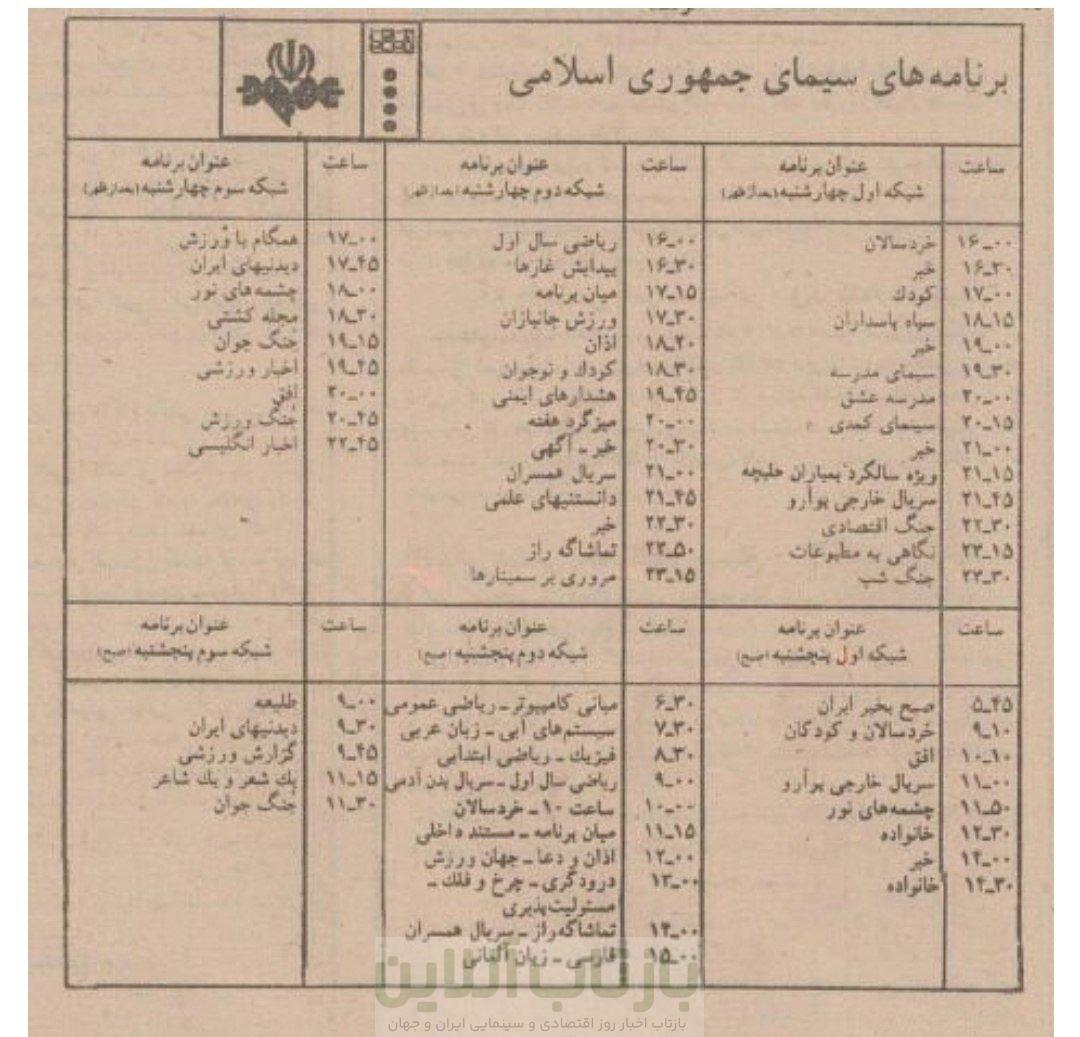 برنامه های سیمای جمهوری اسلامی
ساعت
عنوان برنامه
شبکه اول چهارشنبه (بعدازظهر)
۱۶ــ۰۰ خردسالان
۱۶ــ۳۰ خبر
۱۷ــ۰۰ کودك
۱۸ــ۱۵ سپاه پاسداران
۱۹ــ۰۰ خبر
۱۹ــ۳۰ سیمای مدرسه
۲۰ــ۰۰ مدرسه عشق
۲۰ــ۱۵ سینمای کمدی
۲۱ــ۰۰ خبر
۲۱ــ۱۵ ویژه سالگرد بمباران حلبچه
۲۱ــ۴۵ سریال خارجی پوآرو
۲۲ــ۳۰ جنگ اقتصادی
۲۳ــ۱۵ نگاهی به مطبوعات
۲۳ــ۳۰ جنگ شب
ساعت
عنوان برنامه
شبکه دوم چهارشنبه (بعدازظهر)
۱۶ــ۰۰ ریاضی سال اول
۱۶ــ۳۰ پیدایش غازها
۱۷ــ۱۵ میان برنامه
۱۷ــ۳۰ ورزش جانبازان
۱۸ــ۲۰ اذان
۱۸ــ۳۰ کودك و نوجوان
۱۹ــ۴۵ هشدارهای ایمنی
۲۰ــ۰۰ میزگرد هفته
۲۰ــ۳۰ خبر ـ آگهی
۲۱ــ۰۰ سریال همسران
۲۱ــ۴۵ دانستنیهای علمی
۲۲ــ۳۰ خبر
۲۲ــ۵۰ تماشاگه راز
۲۳ــ۱۵ مروری بر سمینارها
ساعت
عنوان برنامه
شبکه سوم چهارشنبه (بعدازظهر)
۱۷ــ۰۰ همگام با ورزش
۱۷ــ۴۵ دیدنیهای ایران
۱۸ــ۰۰ چشمه های نور
۱۸ــ۳۰ مجله کشتی
۱۹ــ۱۵ جنگ جوان
۱۹ــ۴۵ اخبار ورزشی
۲۰ــ۰۰ افق
۲۰ــ۴۵ جنگ ورزش
۲۲ــ۴۵ اخبار انگلیسی
ساعت
عنوان برنامه
شبکه اول پنجشنبه (صبح)
۵ــ۴۵ صبح بخیر ایران
۹ــ۱۰ خردسالان و کودکان
۱۰ــ۱۰ افق
۱۱ــ۰۰ سریال خارجی پوآرو
۱۱ــ۵۰ چشمه های نور
۱۲ــ۳۰ خانواده
۱۴ــ۰۰ خبر
۱۴ــ۳۰ خانواده
ساعت
عنوان برنامه
شبکه دوم پنجشنبه (صبح)
۶ــ۳۰ مبانی کامپیوتر ـ ریاضی عمومی
۷ــ۳۰ سیستم های آبی ـ زبان عربی
۸ــ۳۰ فیزیك ـ ریاضی ابتدایی
۹ــ۰۰ ریاضی سال اول ـ سریال بدن آدمی
۱۰ــ۰۰ ساعت ۱۰ ـ خردسالان
۱۱ــ۱۵ میان برنامه ـ مستند داخلی
۱۲ــ۰۰ اذان و دعا ـ جهان ورزش
۱۳ــ۰۰ درودگری ـ چرخ و فلك ـ
مسئولیت پذیری
۱۴ــ۰۰ تماشاگه راز ـ سریال همسران
۱۵ــ۰۰ فارسی ـ زبان آلمانی
ساعت
عنوان برنامه
شبکه سوم پنجشنبه (صبح)
۹ــ۰۰ طلیعه
۹ــ۳۰ دیدنیهای ایران
۹ــ۴۵ گزارش ورزشی
۱۱ــ۱۵ یك شعر و یك شاعر
۱۱ــ۳۰ جنگ جوان
بازتاب آنلاین
بازتاب اخبار روز اقتصادی و سینمایی ایران و جهان